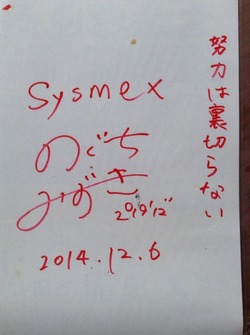 努力は裏切らない
sysmex
のぐち
みずき
2014.12.6